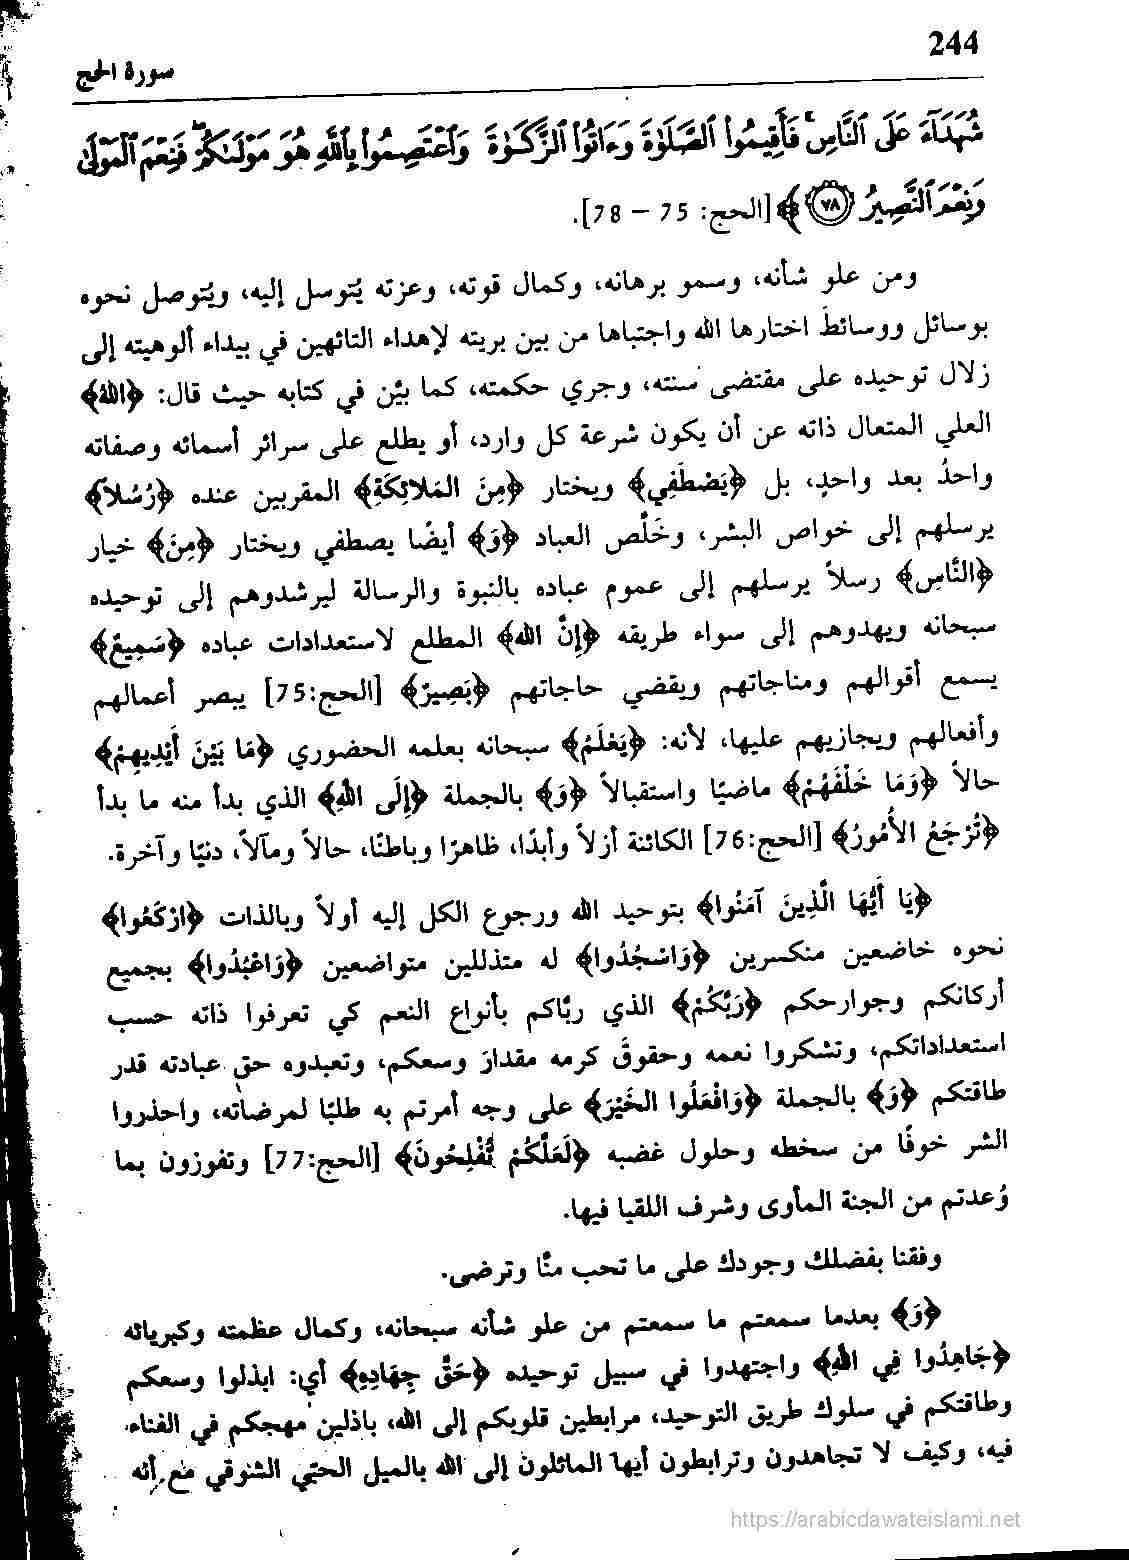 244
سورة الحج
شُهَدَآءَ عَلَى ٱلنَّاسِ ۚ فَأَقِيمُوا۟ ٱلصَّلَوٰةَ وَءَاتُوا۟ ٱلزَّكَوٰةَ وَٱعْتَصِمُوا۟ بِٱللَّهِ هُوَ مَوْلَىٰكُمْ ۖ فَنِعْمَ ٱلْمَوْلَىٰ
وَنِعْمَ ٱلنَّصِيرُ ﴿٧٨﴾ ﴾ [الحج: 75 – 78].
ومن علو شأنه، وسمو برهانه، وكمال قوته، وعزته يُتوسل إليه، ويُتوصل نحوه
بوسائل ووسائطَ اختارها الله واجتباها من بين بريته لإهداء التائهين في بيداء ألوهيته إلى
زلال توحيده على مقتضى سنته، وجري حكمته، كما بيَّن في كتابه حيث قال: ﴿اللهُ﴾
العلي المتعال ذاته عن أن يكون شرعة كل وارد، أو يطلع على سرائر أسمائه وصفاته
واحدُ بعد واحدٍ، بل ﴿يَصْطَفِي﴾ ويختار ﴿مِنَ المَلائِكَةِ﴾ المقربين عنده ﴿رُسُلاً﴾
يرسلهم إلى خواص البشر، وخَلَّص العباد ﴿وَ﴾ أيضًا يصطفي ويختار ﴿مِنَ﴾ خيار
﴿النَّاسِ﴾ رسلاً يرسلهم إلى عموم عباده بالنبوة والرسالة ليرشدوهم إلى توحيده
سبحانه ويهدوهم إلى سواء طريقه ﴿إِنَّ اللهَ﴾ المطلع لاستعدادات عباده ﴿سَمِيعٌ﴾
يسمع أقوالهم ومناجاتهم ويقضي حاجاتهم ﴿بَصِيرٌ﴾ [الحج:75] يبصر أعمالهم
وأفعالهم ويجازيهم عليها، لأنه: ﴿يَعْلَمُ﴾ سبحانه بعلمه الحضوري ﴿مَا بَيْنَ أَيْدِيهِمْ﴾
حالاً ﴿وَمَا خَلْفَهُمْ﴾ ماضيًا واستقبالاً ﴿وَ﴾ بالجملة ﴿إِلَى اللهِ﴾ الذي بدأ منه ما بدأ
﴿تُرْجَعُ الأُمُورُ﴾ [الحج:76] الكائنة أزلاً وأبدًا، ظاهرًا وباطنًا، حالاً ومآلاً، دنيًا وآخرة.
﴿يَا أَيُّهَا الَّذِينَ آمَنُوا﴾ بتوحيد الله ورجوع الكل إليه أولاً وبالذات ﴿ارْكَعُوا﴾
نحوه خاضعين منكسرين ﴿وَاسْجُدُوا﴾ له متذللين متواضعين ﴿وَاعْبُدُوا﴾ بجميع
أركانكم وجوارحكم ﴿رَبَّكُمْ﴾ الذي ربَّاكم بأنواع النعم كي تعرفوا ذاته حسب
استعداداتكم، وتشكروا نعمه وحقوقَ كرمه مقدارَ وسعكم، وتعبدوه حق عبادته قدر
طاقتكم ﴿وَ﴾ بالجملة ﴿وَافْعَلُوا الخَيْرَ﴾ على وجه أمرتم به طلبًا لمرضاته، واحذروا
الشر خوفًا من سخطه وحلول غضبه ﴿لَعَلَّكُمْ تُفْلِحُونَ﴾ [الحج:77] وتفوزون بما
وُعدتم من الجنة المأوى وشرف اللقيا فيها.
وفقنا بفضلك وجودك على ما تحب منَّا وترضى.
﴿وَ﴾ بعدما سمعتم ما سمعتم من علو شأنه سبحانه، وكمال عظمته وكبريائه
﴿جَاهِدُوا فِي اللهِ﴾ واجتهدوا في سبيل توحيده ﴿حَقَّ جِهَادِهِ﴾ أي: ابذلوا وسعكم
وطاقتكم في سلوك طريق التوحيد، مرابطين قلوبكم إلى الله، باذلين مهجكم في الفناء
فيه، وكيف لا تجاهدون وترابطون أيها المائلون إلى الله بالميل الحبّي الشوقي مع أنه
https://arabicdawateislami.net